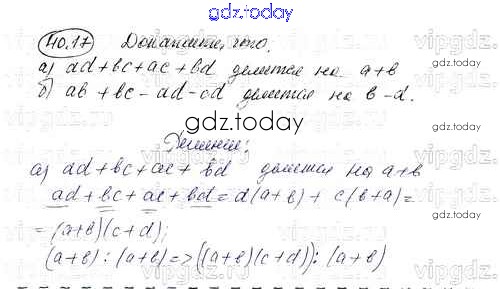 gdz.today
40.17 Доказать, что.
а) ad+bc+ac+bd делится на a+b
б) ab+bc-ad-cd делится на b-d.
gdz.today
Решение:
а) ad+bc+ac+bd делится на a+b
ad+bc+ac+bd=d(a+b)+c(b+a)=
gdz.today
=(a+b)(c+d);
(a+b):(a+b)=>((a+b)(c+d)):(a+b)
gdz.today